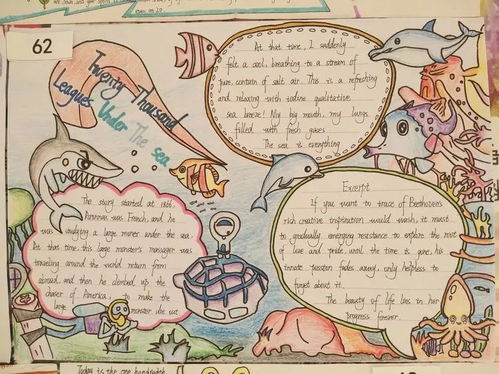 62
Twenty Thousand
Leagues Under The sea
At that time, I suddenly
felt a cool, breathing to a stream of
pure, contain of salt air. This is a refreshing
and relaxing with iodine qualitative
sea breeze! My big mouth, my lungs
filled with fresh gases.
The sea is everything
The story started at 1866.
was French, and he
was studying a large moner under the sea.
At that time, this large monster's manager was
traveling around the world return from
abroad, and then he climbed up the
of America, to make the
large monster die out
Excerpt
If you want to trace of Beethoven's
rich creative inspiration would wash, it must
to gradually emerging resistance to explore the root
of love and pride, until the time is gone, his
innate passion fades away, only helpless to
forget about it.
The beauty of life lies in her
Progress forever.
Today is the one hundredth